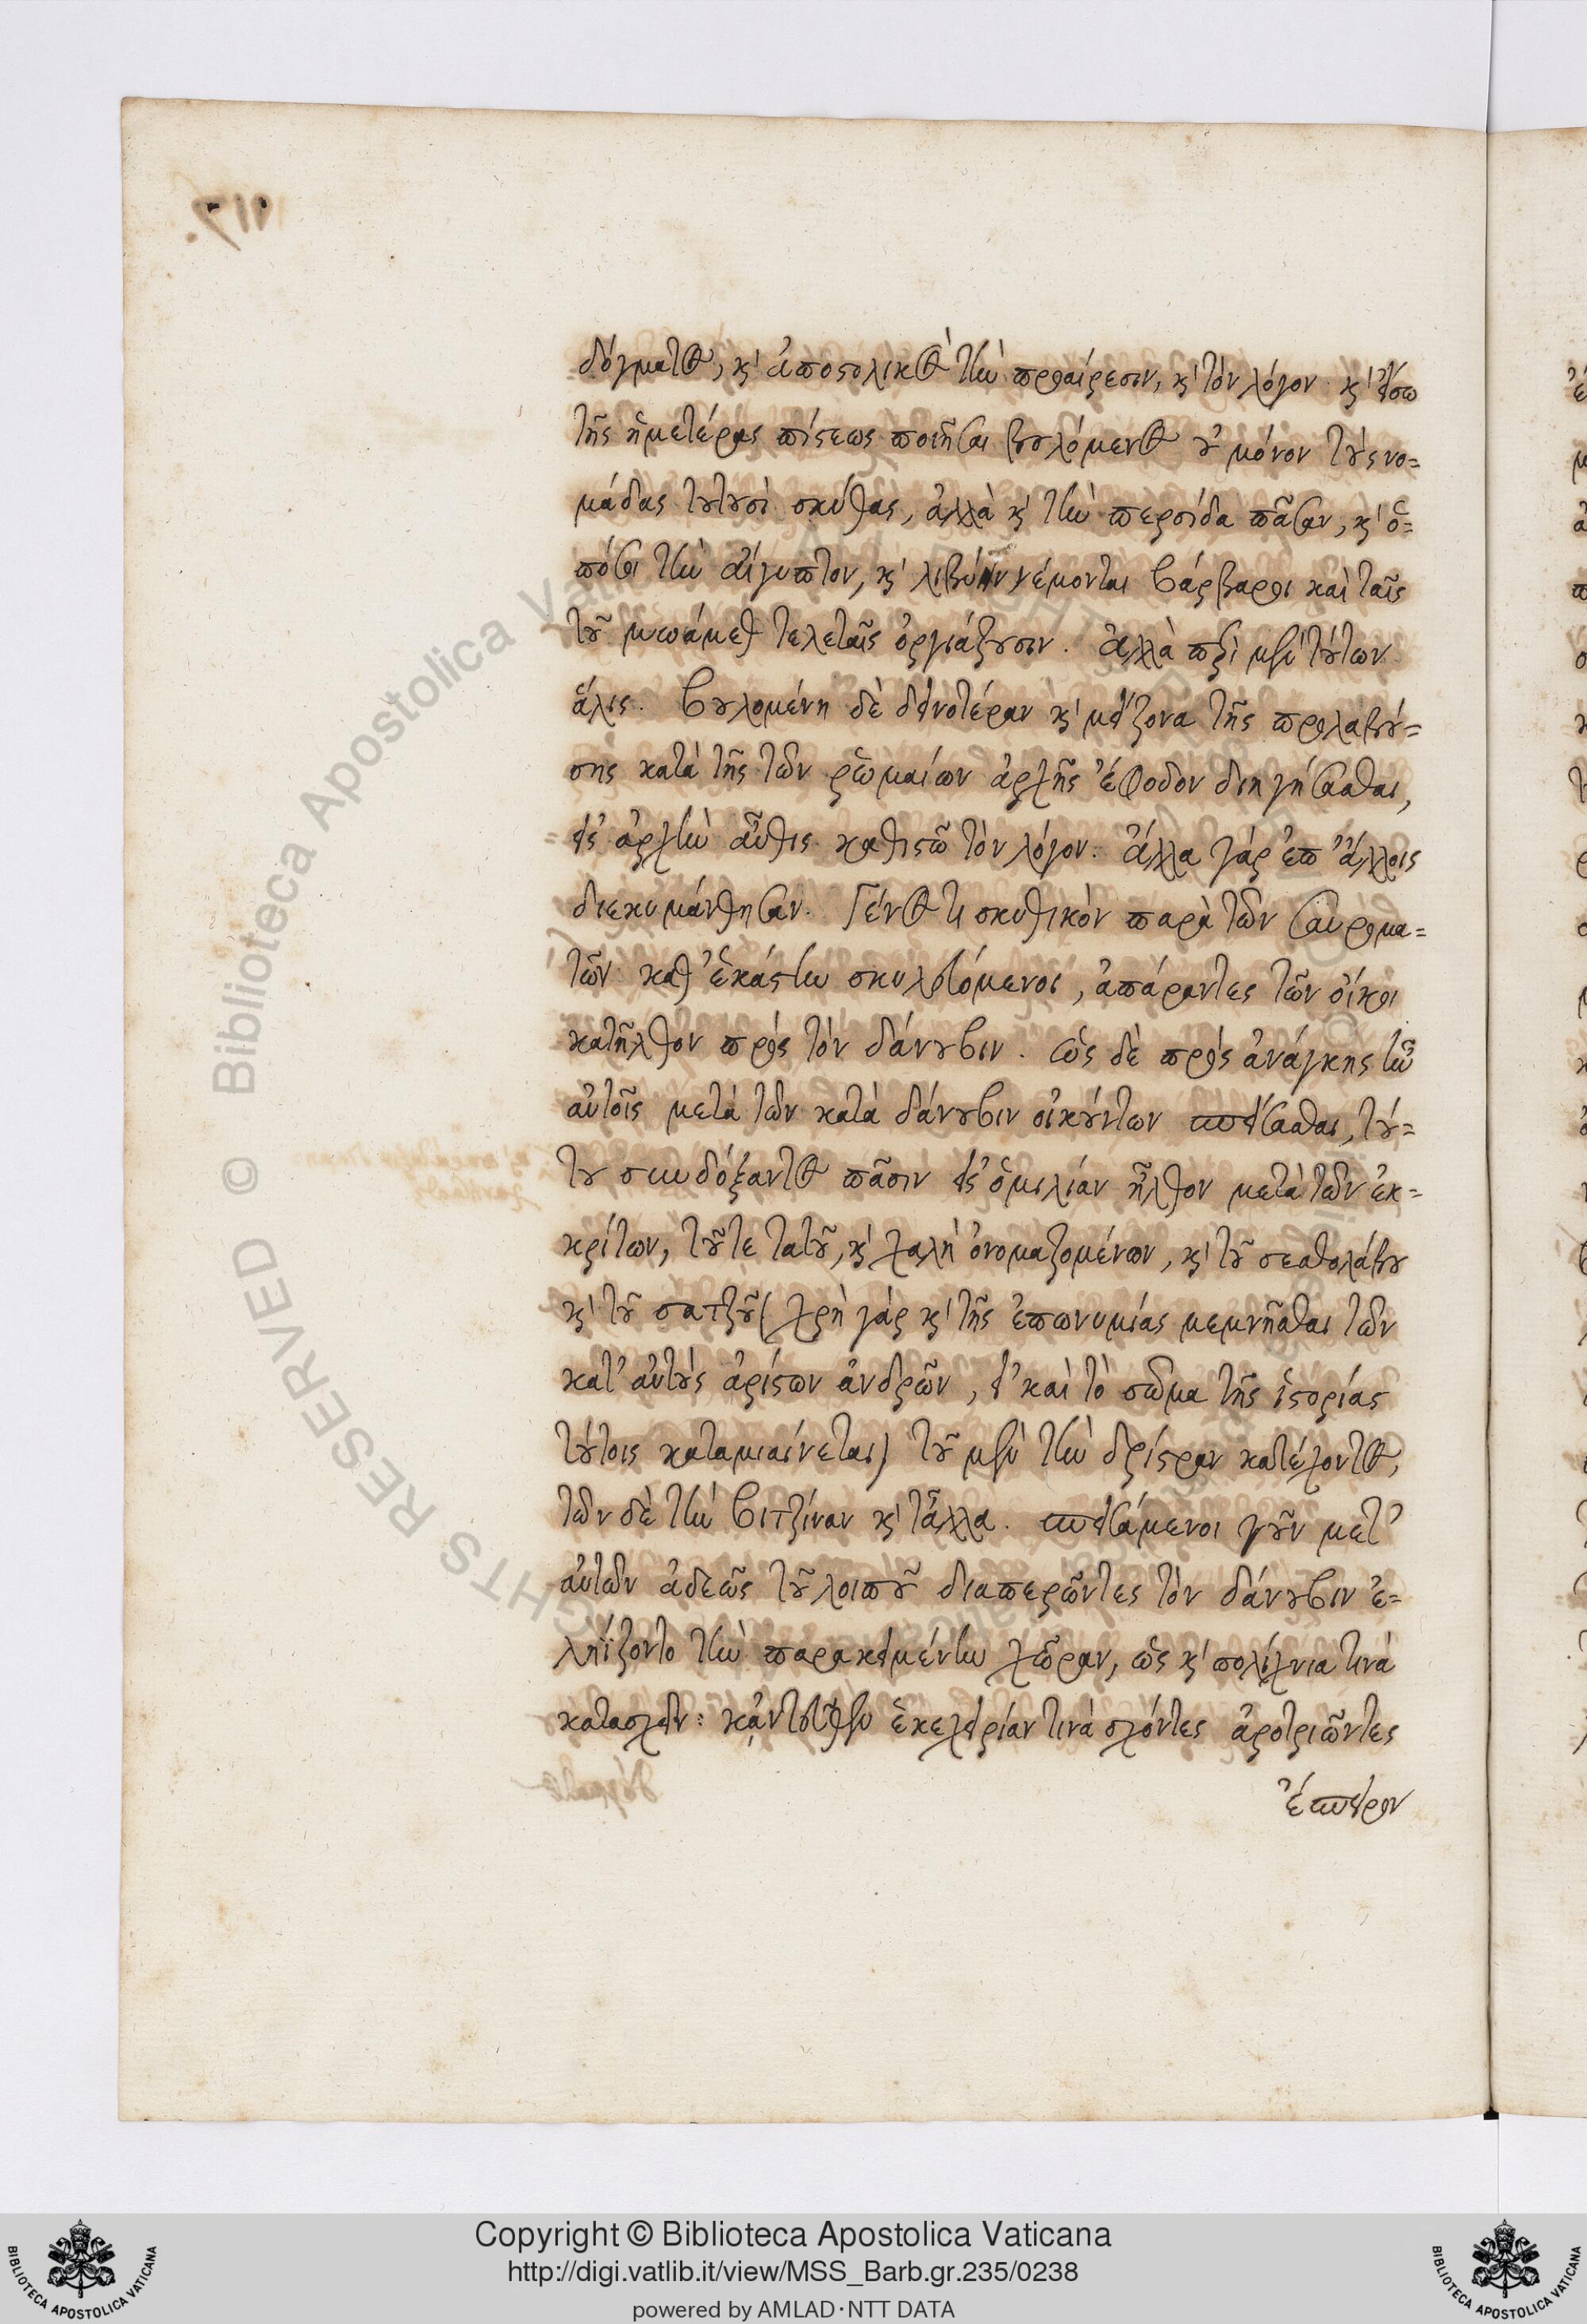 δόγματος, καὶ ἀποστολικὸς τὴν προαίρεσιν, καὶ τὸν λόγον. καὶ εἴσω
τῆς ἡμετέρας πίστεως ποιῆσαι βουλόμενος οὐ μόνον τοὺς νο=
μάδας τουτουσὶ σκύθας, ἀλλὰ καὶ τὴν περσίδα πᾶσαν, καὶ ὁ=
πόσοι τὴν αἴγυπτον, καὶ λιβύην νέμονται βάρβαροι καὶ ταῖς
τοῦ μωάμεθ τελεταῖς ὀργιάζουσιν. ἀλλὰ περὶ μὲν τούτων
ἅλις. βουλομένη δὲ δεινοτέραν καὶ μείζονα τῆς προλαβού=
σης κατὰ τῆς τῶν ῥωμαίων ἀρχῆς ἔφοδον διηγήσασθαι,
εἰς ἀρχὴν αὖθις καθιστῶ τὸν λόγον. ἄλλα γάρ ἐπ' ἄλλοις
διεκυμάνθησαν. Γένος τι σκυθικὸν παρὰ τῶν σαυρομα=
τῶν καθ' ἑκάστην σκυλευόμενοι, ἀπάραντες τῶν οἴκοι
κατῆλθον πρὸς τὸν δάνουβιν. ὡς δὲ πρὸς ἀνάγκης ἦν
αὐτοῖς μετὰ τῶν κατὰ δάνουβιν οἰκούντων σπείσασθαι, τού=
του συνδόξαντος πᾶσιν εἰς ὁμιλίαν ἦλθον μετὰ τῶν ἐκ=
κρίτων, τοῦ τε τατοῦ, καὶ χαλὴ ὀνομαζομένου, καὶ τοῦ σεσθλάβου
καὶ τοῦ σατζοῦ (χρὴ γὰρ καὶ τῆς ἐπωνυμίας μεμνῆσθαι τῶν
κατ' αὐτοὺς ἀρίστων ἀνδρῶν, εἰ καὶ τὸ σῶμα τῆς ἱστορίας
τούτοις καταμιαίνεται) τοῦ μὲν τὴν δρίστραν κατέχοντος,
τῶν δὲ τὴν βιτζίναν καὶ τἄλλα. σπεισάμενοι γοῦν μετ'
αὐτῶν ἀδεῶς τοῦ λοιποῦ διαπερῶντες τὸν δάνουβιν ἐ=
ληΐζοντο τὴν παρακειμένην χώραν, ὡς καὶ πολίχνια τινά
κατασχεῖν: κἀντεῦθεν ἐκεχειρίαν τινά σχόντες ἀροτριῶντες
ἔσπειρον
Copyright © Biblioteca Apostolica Vaticana
http://digi.vatlib.it/view/MSS_Barb.gr.235/0238
powered by AMLAD·NTT DATA